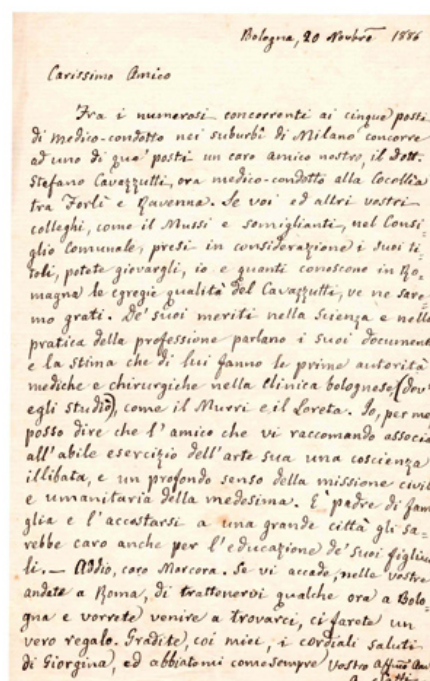 Bologna, 20 Novbre 1886
Carissimo Amico
Fra i numerosi concorrenti ai cinque posti
di medico-condotto nei suburbi di Milano concorre
ad uno di que' posti un caro amico nostro, il dott.
Stefano Cavazzutti, ora medico-condotto alla Cocollia
tra Forlì e Ravenna. Se voi ed altri vostri
colleghi, come il Mussi e somiglianti, nel Consi=
glio Comunale, presi in considerazione i suoi ti=
toli, potete giovargli, io e quanti conoscono in Ro=
magna le egregie qualità del Cavazzutti, ve ne sare=
mo grati. De' suoi meriti nella scienza e nella
pratica della professione parlano i suoi document
e la stima che di lui fanno le prime autorità
mediche e chirurgiche nella Clinica bolognese, (dov
egli studiò), come il Murri e il Loreta. Io, per me
posso dire che l'amico che vi raccomando associa
all'abile esercizio dell'arte sua una coscienza
illibata, e un profondo senso della missione civil
e umanitaria della medesima. È padre di fam
glia e l'accostarsi a una grande città gli sa=
rebbe caro anche per l'educazione de' suoi figliuo
li. — Addio, caro Marcora. Se vi accade, nelle vostre
andate a Roma, di trattenervi qualche ora a Bolo=
gna e vorrete venire a trovarci, ci farete un
vero regalo. Gradite, coi miei, i cordiali saluti
di Giorgina, ed abbiatemi come sempre vostro affmo am